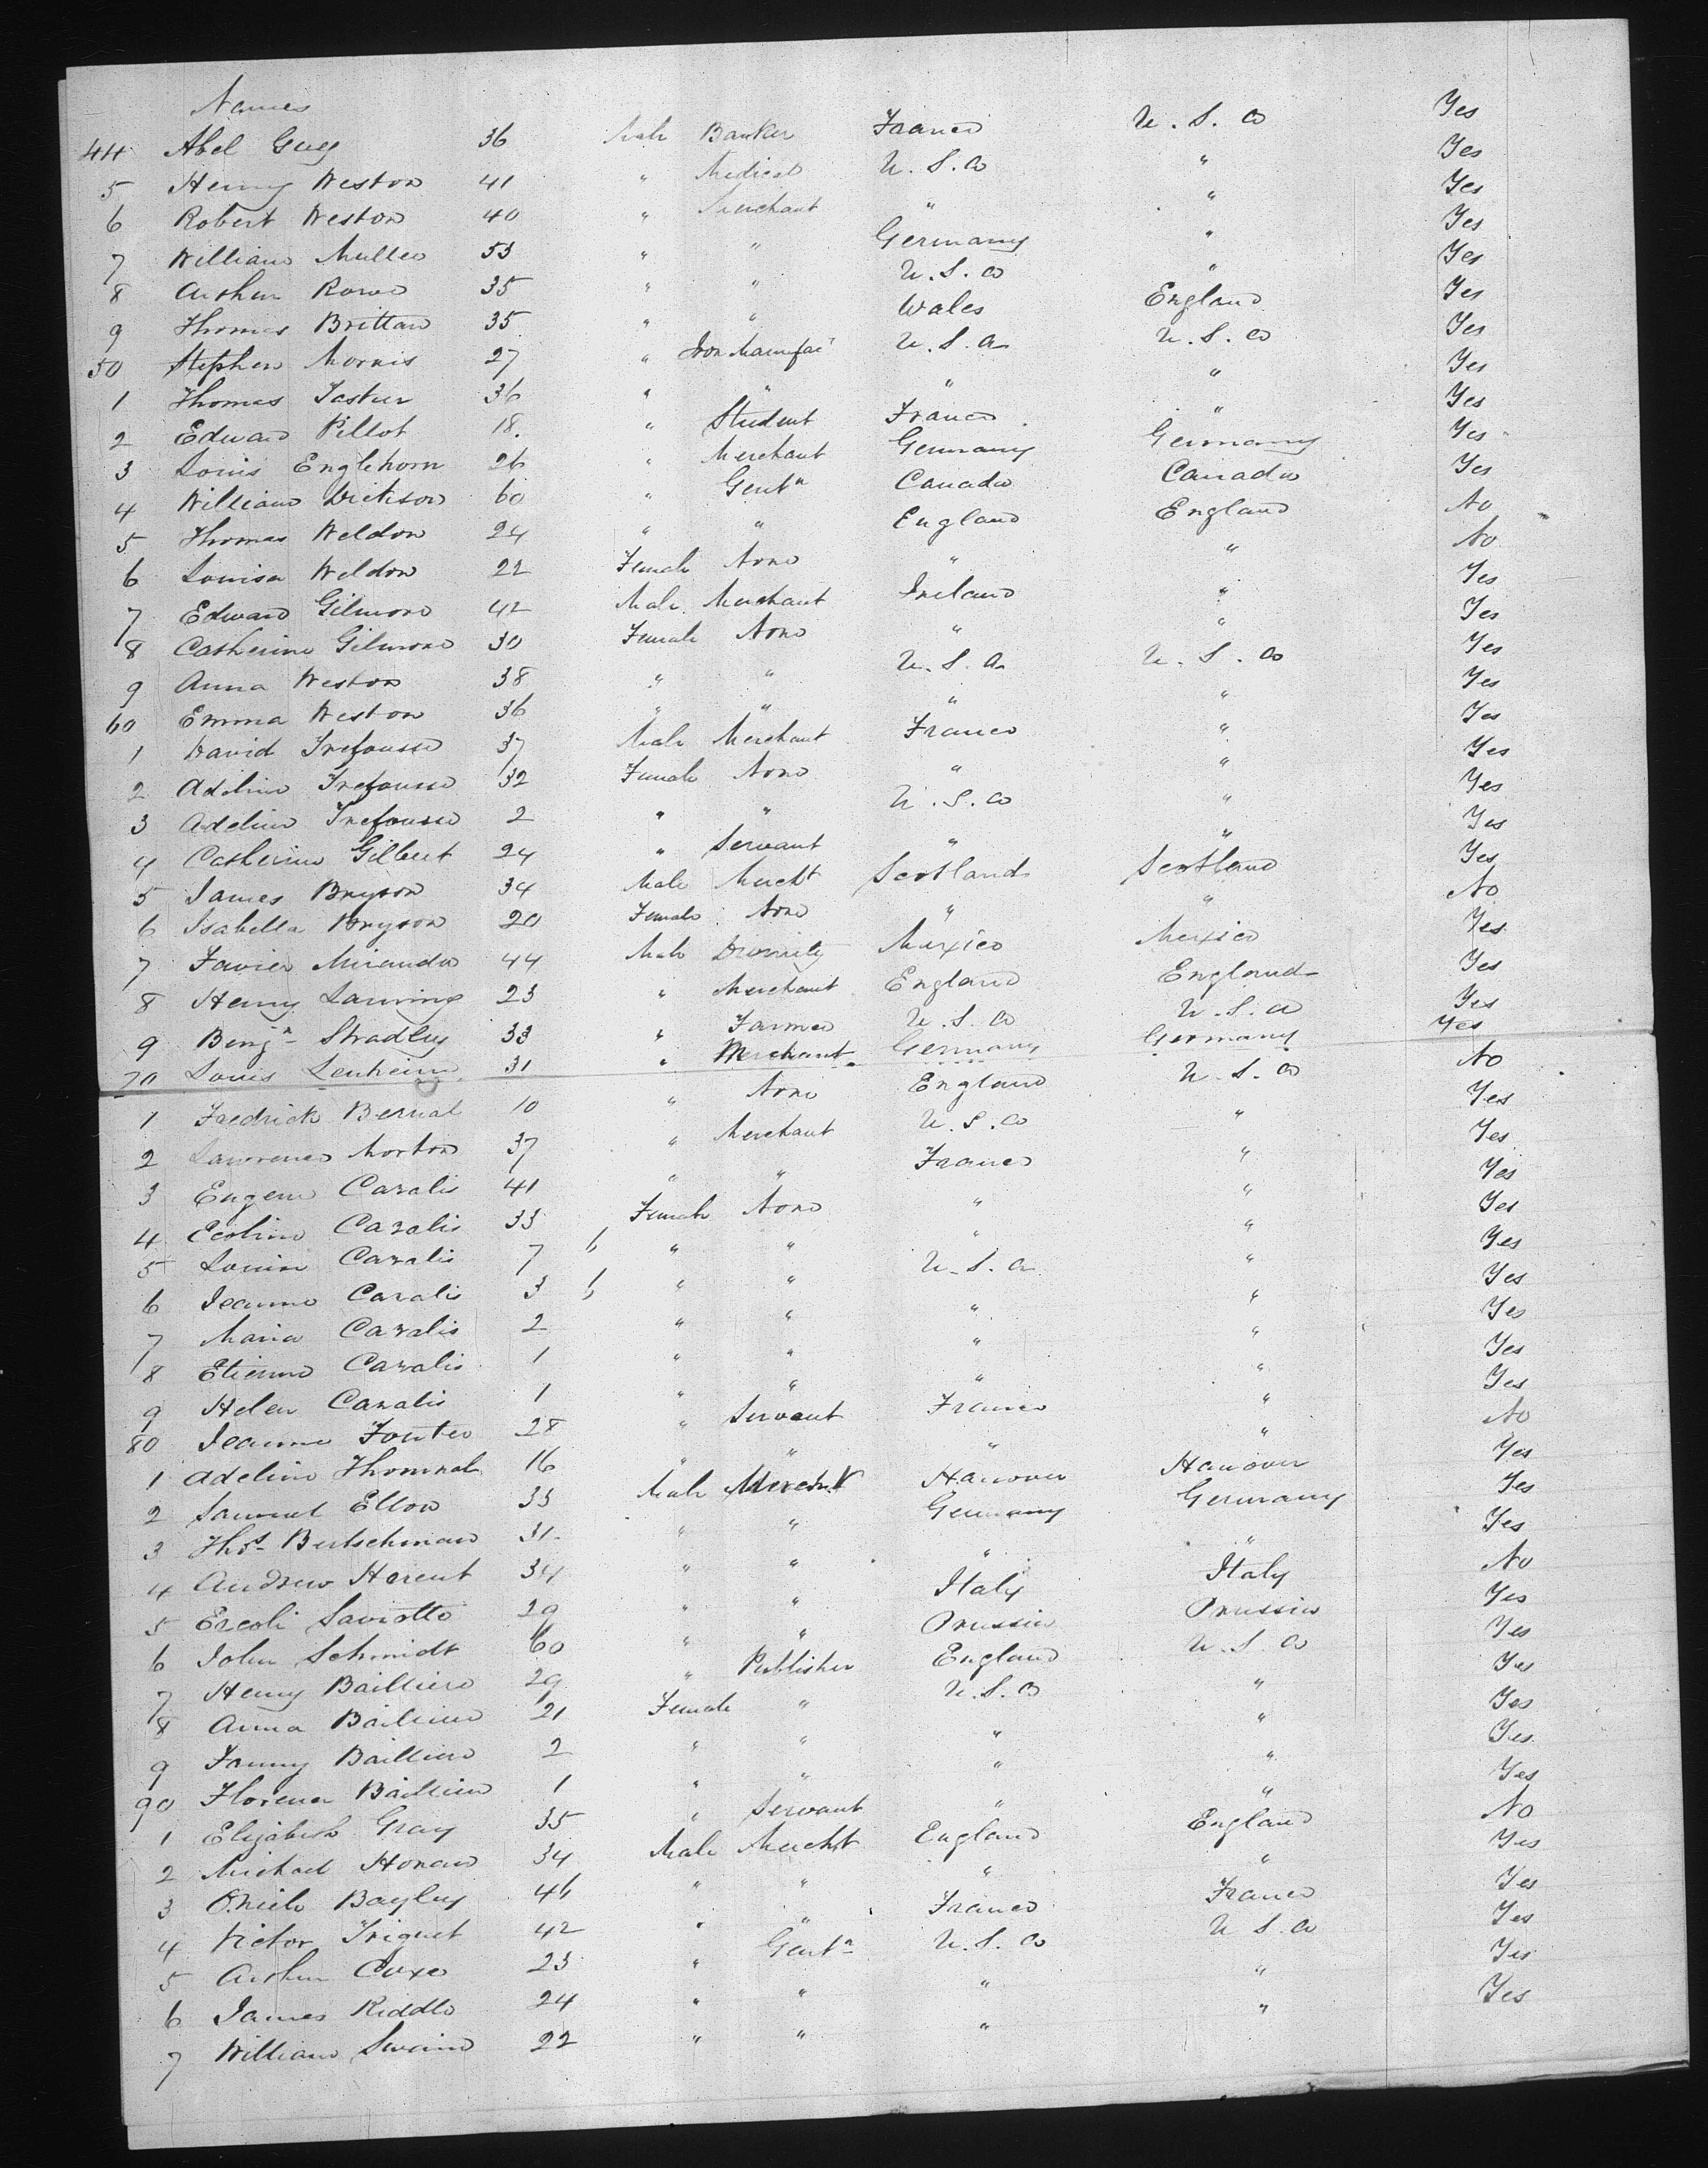 Names
44 Abel Guy 36 Male Banker France U.S.a Yes
5 Henry Weston 41 " Medical U.S.a " Yes
6 Robert Weston 40 " Merchant " " Yes
7 William Muller 53 " " Germany " Yes
8 Arthur Rowe 35 " " U.S.a " Yes
9 Thomas Brittan 35 " " Wales England Yes
50 Stephen Morris 27 " Iron Manufacr U.S.a U.S.a Yes
1 Thomas 36 " " " " Yes
2 Edward Pillot 18. " Student France " Yes
3 Louis Englehorn 26 " Merchant Germany Germany Yes
4 William Dickson 60 " Gentn Canada Canada Yes
5 Thomas Weldon 24 " " England England No
6 Louisa Weldon 22 Female None " " No
7 Edward Gilmore 42 Male Merchant Ireland " Yes
8 Catherine Gilmore 30 Female None " " Yes
9 Anna Weston 38 " " U.S.a U.S.a Yes
60 Emma Weston 36 " " " " Yes
1 David Trefousse 37 Male Merchant France " Yes
2 Adeline Trefousse 32 Female None " " Yes
3 Adeline Trefousse 2 " " U.S.a " Yes
4 Catherine Gilbert 24 " Servant " " Yes
5 James Bryson 34 Male Mercht Scotland Scotland Yes
6 Isabella Bryson 20 Female None " " No
7 Favier Miranda 44 Male Divinity Mexico Mexico Yes
8 Henry Lanning 23 " Merchant England England Yes
9 Benjn Stradley 33 " Farmer U.S.a U.S.a Yes
70 Louis Lenheim 31 " Merchant Germany Germany Yes
1 Fredrick Bernal 10 " None England U.S.a No
2 Lawrence Morton 37 " Merchant U.S.a " Yes
3 Eugene Cazalis 41 " " France " Yes
4 Cazalis 33 Female None " " Yes
5 Louise Cazalis 7 " " " " Yes
6 Jeanne Cazalis 3 " " U.S.a " Yes
7 Maria Cazalis 2 " " " " Yes
8 Etienne Cazalis 1 " " " " Yes
9 Helen Cazalis 1 " " " " Yes
80 Jeanne 28 " Servant France " Yes
1 Adeline 16 " " " " No
2 Samuel Ellon 33 Male Mercht Hanover Hanover Yes
3 Thos Bertschman 31 " " Germany Germany Yes
4 Andrew Harent 34 " " " " Yes
5 Ercoli Saviotti 29 " " Italy Italy No
6 John Schmidt 60 " " Prussia Prussia Yes
7 Henry Bailliere 29 " Publisher England U.S.a Yes
8 Anna Bailliere 21 Female " U.S.a " Yes
9 Fanny Bailliere 2 " " " " Yes
90 Florence Bailliere 1 " " " " Yes
1 Elizabeth Gray 35 " Servant " " Yes
2 Michael Honan 34 Male Mercht England England No
3 Bayley 46 " " " " Yes
4 Victor Triquet 42 " " France France Yes
5 Arthur Coxe 23 " Gentn U.S.a U.S.a Yes
6 James Riddle 24 " " " " Yes
7 William Swaine 22 " " " " Yes